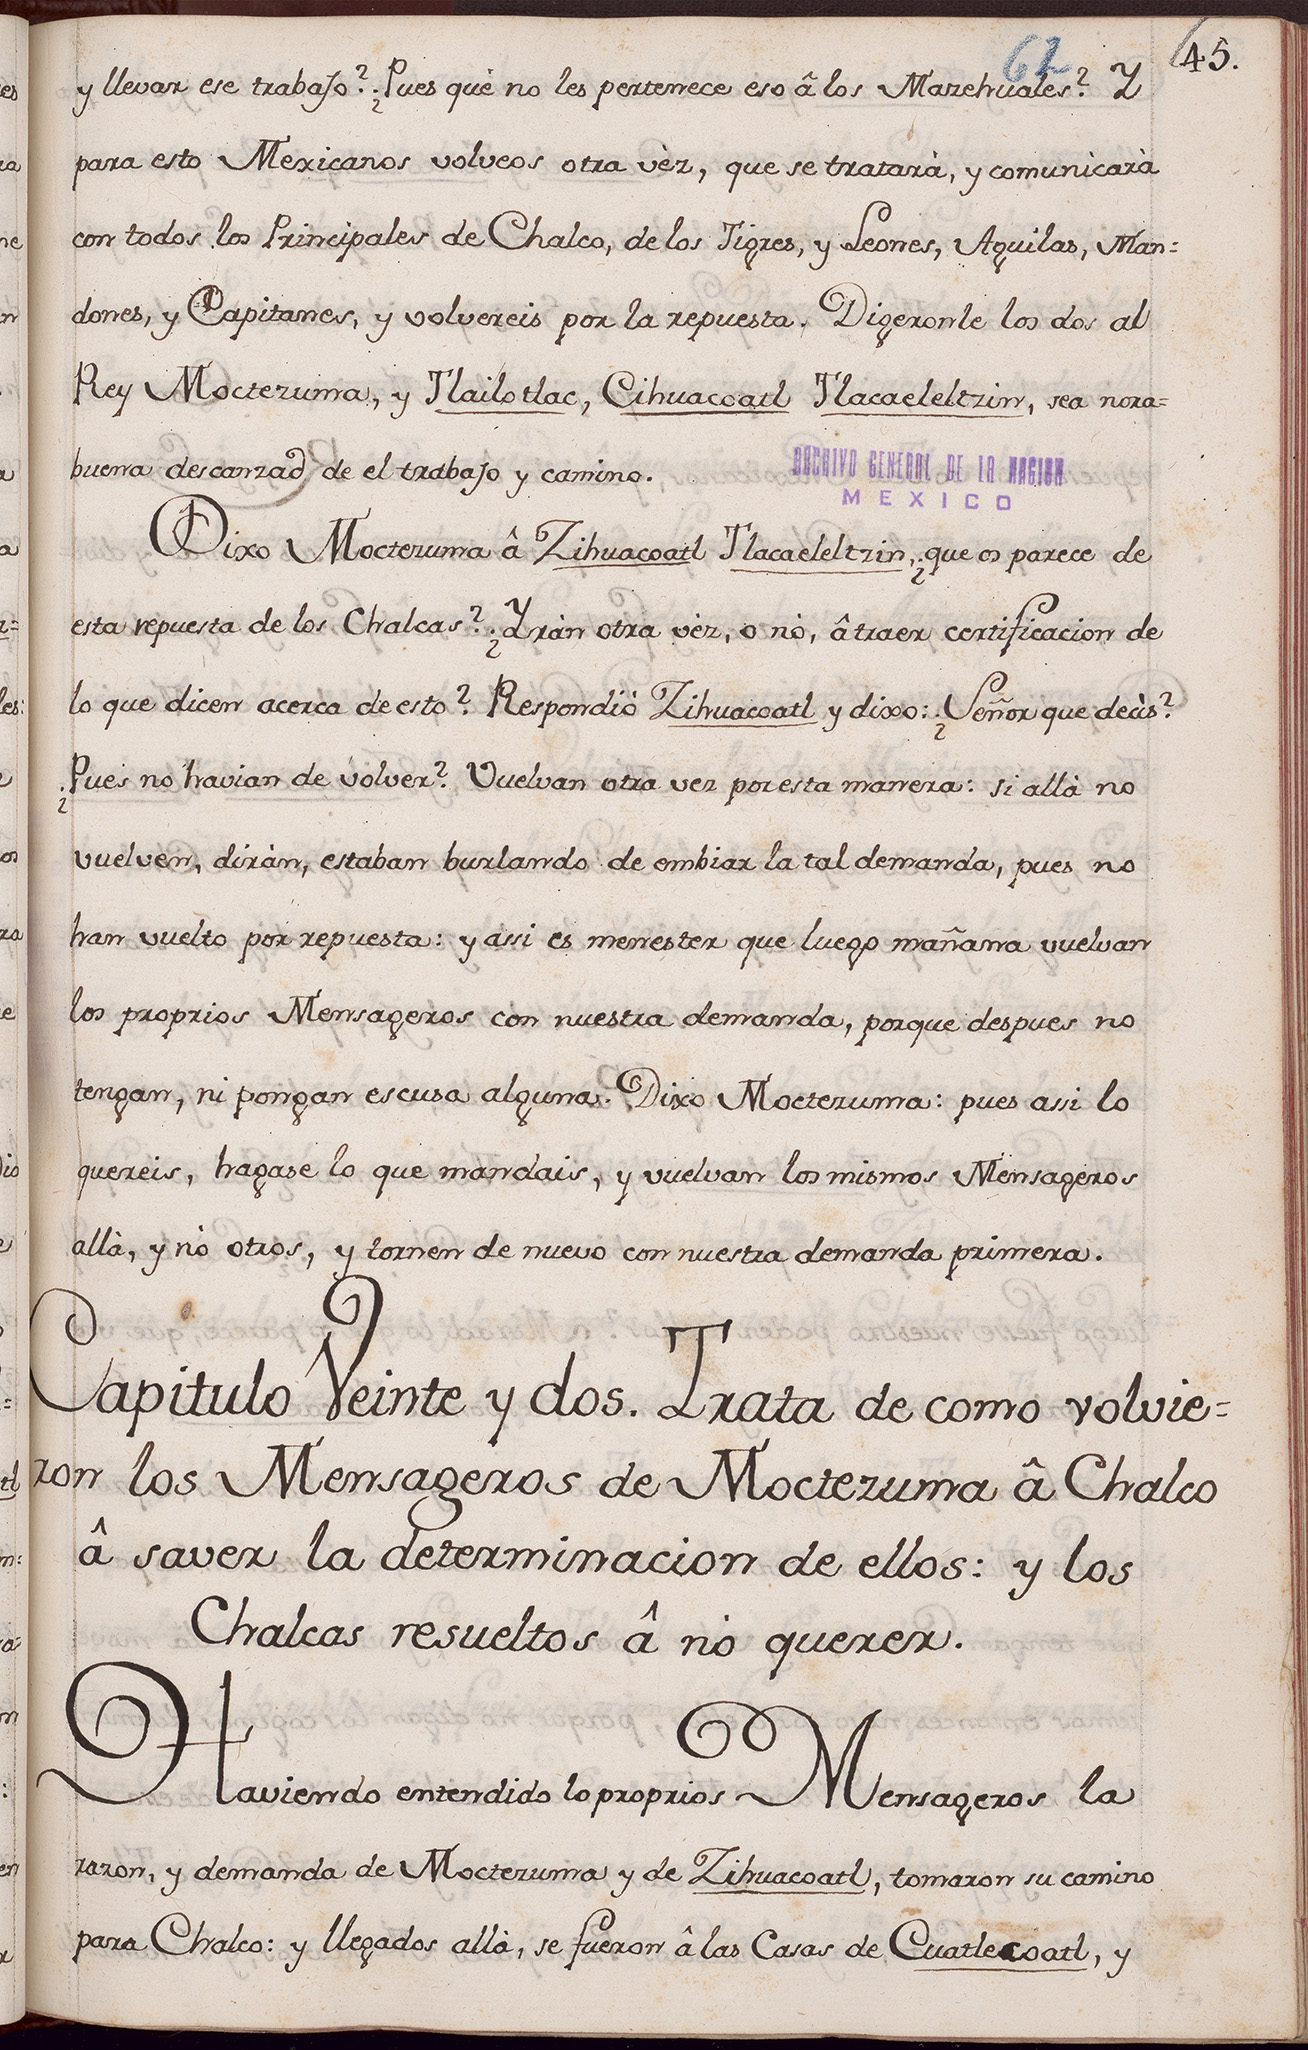 62 45.
y llevar ese trabajo? ¿Pues què no les pertenece eso â los Mazehuales? Y
para esto Mexicanos volveos otra vèz, que se tratarà, y comunicarà
con todos los Principales de Chalco, de los Tigres, y Leones, Aguilas, Man=
dones, y Capitanes, y volvereis por la repuesta. Digeronle los dos al
Rey Moctezuma, y Tlailotlac, Cihuacoatl Tlacaeleltzin, sea nora=
buena descanzad de el trabajo y camino.
ARCHIVO GENERAL DE LA NACION
MEXICO
Dixo Moctezuma â Zihuacoatl Tlacaeleltzin, ¿que os parece de
esta repuesta de los Chalcas? ¿Yràn otra vèz, o nò, â traer certificacion de
lo que dicen acerca de esto? Respondiò Zihuacoatl y dixo: ¿Señor que decìs?
¿Pues no havian de volver? Vuelvan otra vez por esta manera: si allà no
vuelven, diràn, estaban burlando de embiar la tal demanda, pues no
han vuelto por repuesta: y assi es menester que luego mañana vuelvan
los proprios Mensageros con nuestra demanda, porque despues no
tengan, ni pongan escusa alguna. Dixo Moctezuma: pues assi lo
quereis, hagase lo que mandais, y vuelvan los mismos Mensageros
allà, y nò otros, y tornen de nuevo con nuestra demanda primera.
Capitulo Veinte y dos. Trata de como volvie=
ron los Mensageros de Moctezuma â Chalco
â saver la determinacion de ellos: y los
Chalcas resueltos â nò querer.
Haviendo entendido lo proprios Mensageros la
razon, y demanda de Moctezuma y de Zihuacoatl, tomaron su camino
para Chalco: y llegados allà, se fueron â las Casas de Cuatlecoatl, y